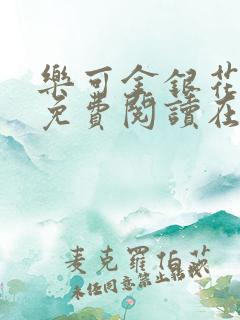 樂可金銀花
免費閱讀在
麦克羅伯茨
未任同意禁止转载